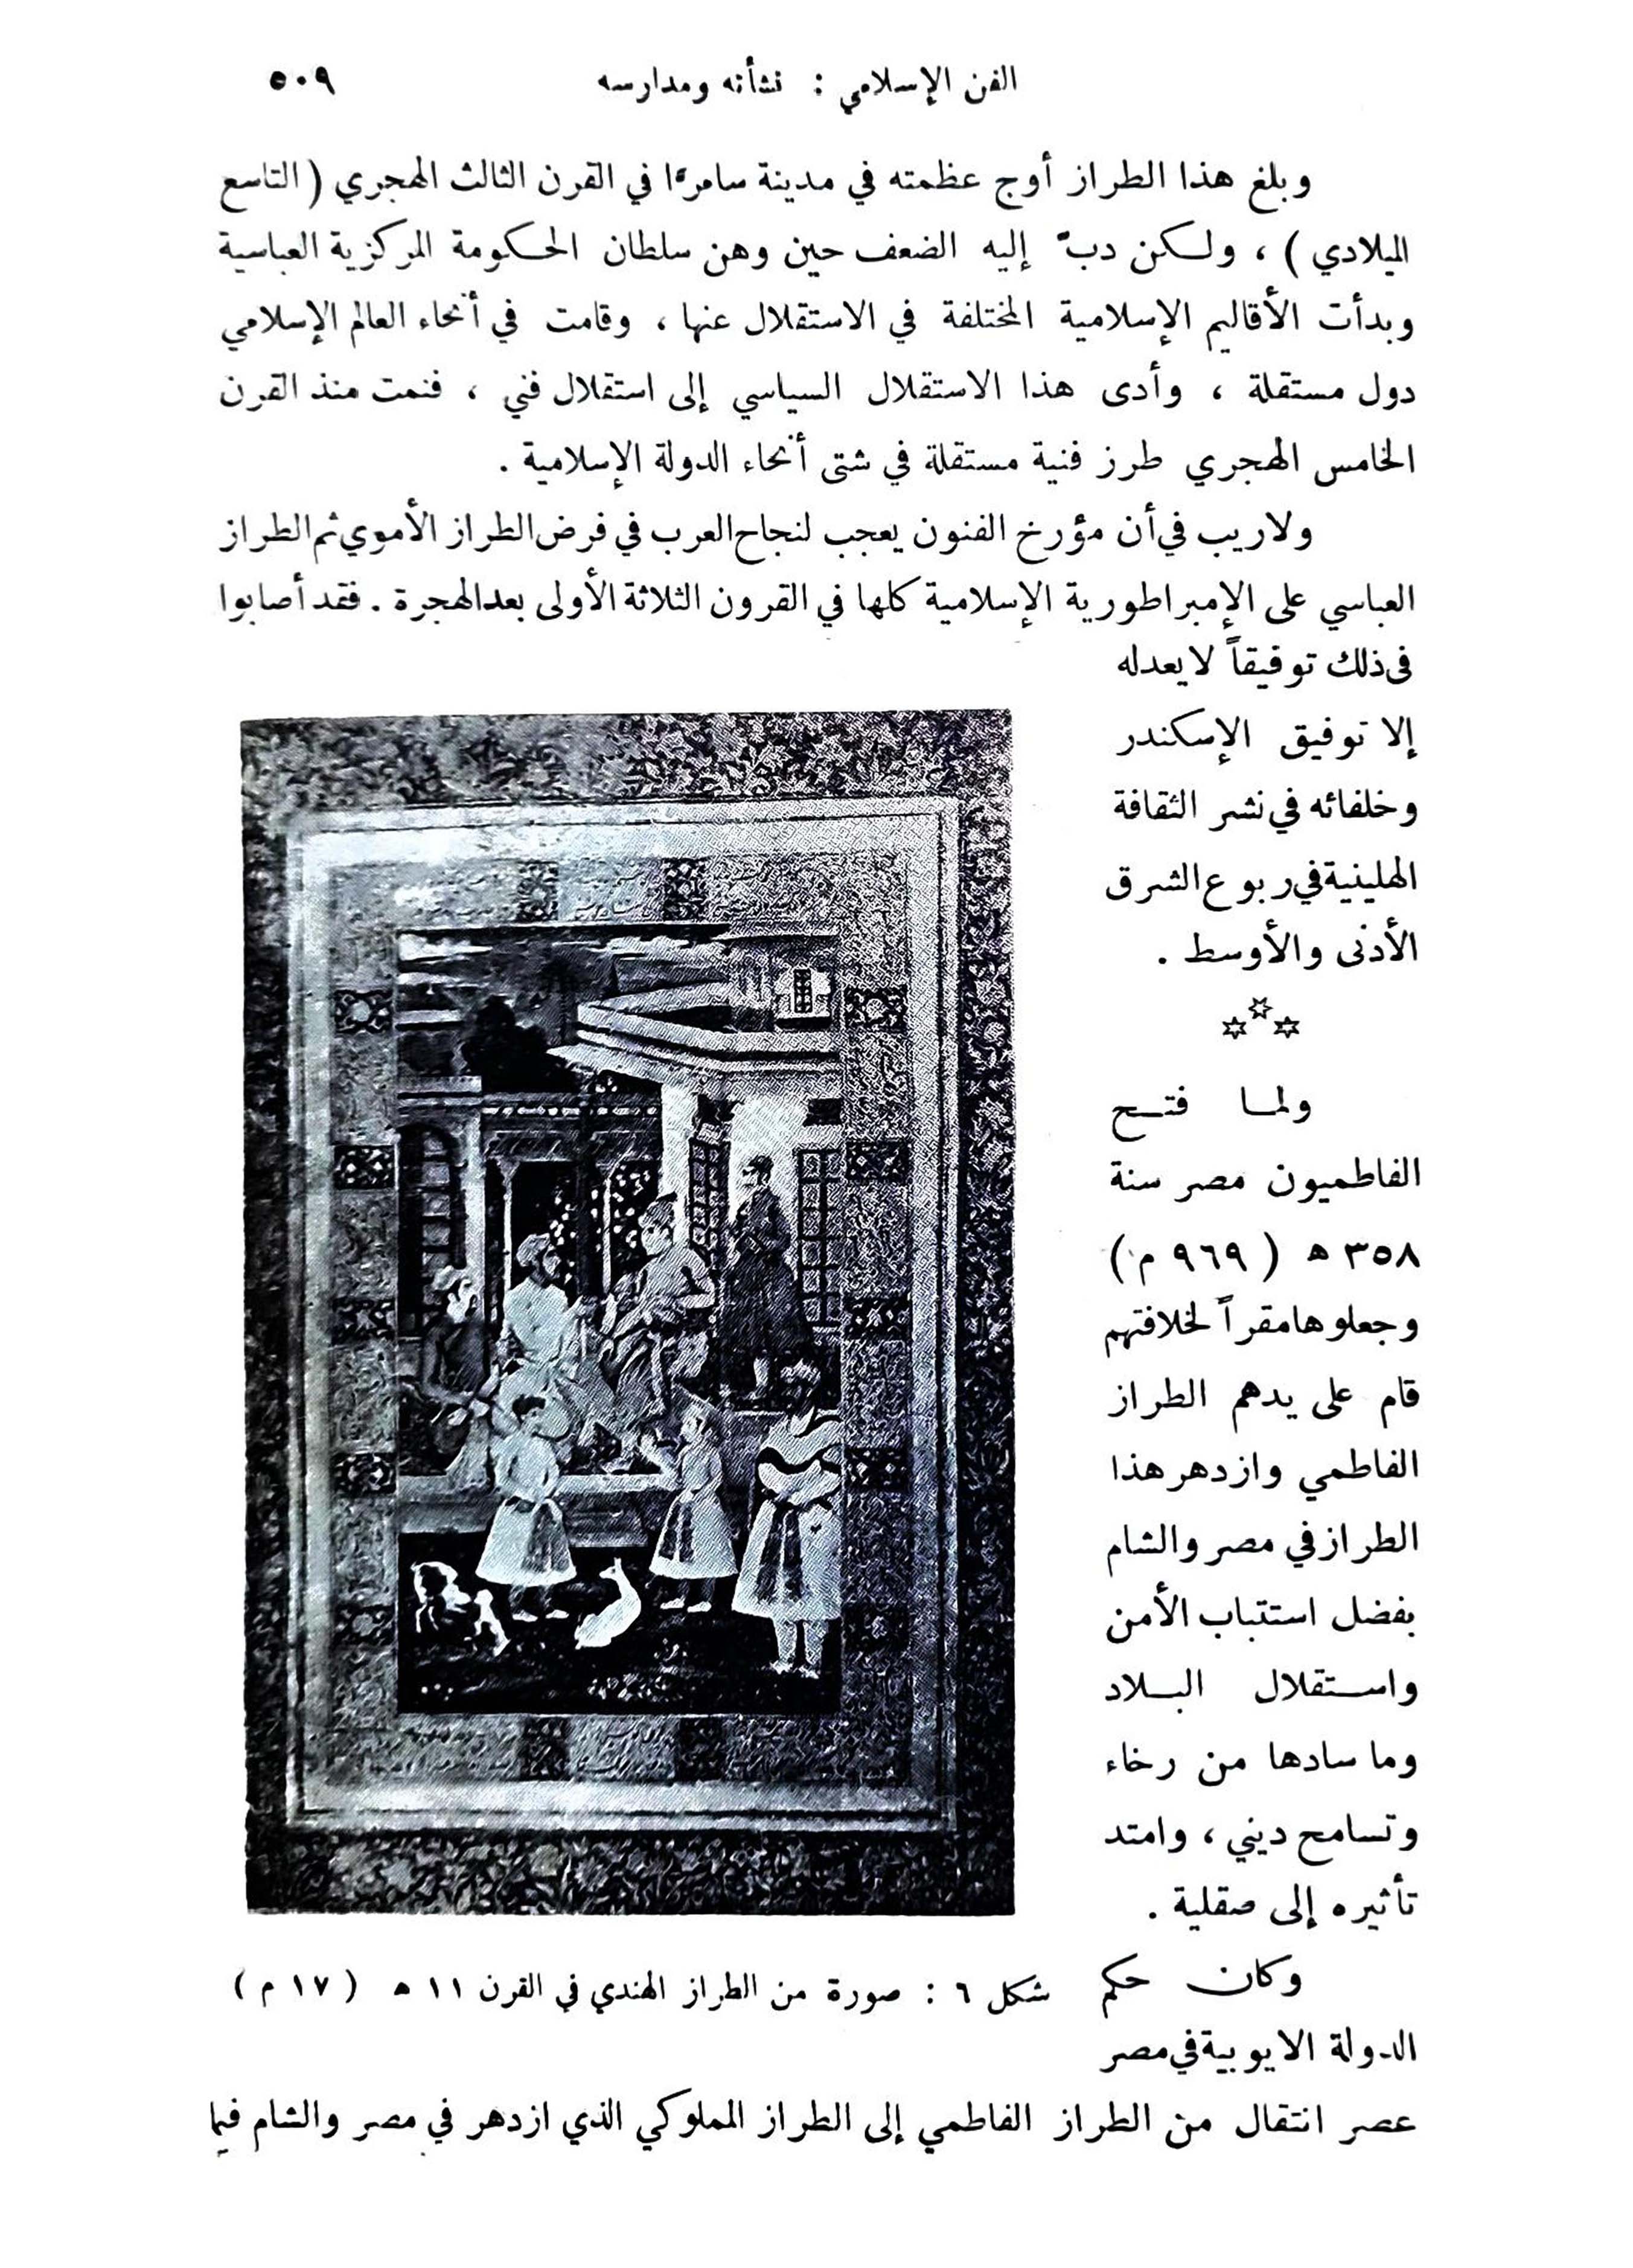 الفن الإسلامي : نشأته ومدارسه ٥٠٩
وبلغ هذا الطراز أوج عظمته في مدينة سامرّا في القرن الثالث الهجري ( التاسع
الميلادي ) ، ولكن دبّ إليه الضعف حين وهن سلطان الحكومة المركزية العباسية
وبدأت الأقاليم الإسلامية المختلفة في الاستقلال عنها ، وقامت في أنحاء العالم الإسلامي
دول مستقلة ، وأدى هذا الاستقلال السياسي إلى استقلال فني ، فنمت منذ القرن
الخامس الهجري طرز فنية مستقلة في شتى أنحاء الدولة الإسلامية .
ولاريب في أن مؤرخ الفنون يعجب لنجاح العرب في فرض الطراز الأموي ثم الطراز
العباسي على الإمبراطورية الإسلامية كلها في القرون الثلاثة الأولى بعد الهجرة . فقد أصابوا
في ذلك توفيقاً لا يعدله
إلا توفيق الإسكندر
وخلفائه في نشر الثقافة
الهلينية في ربوع الشرق
الأدنى والأوسط .
ولما فتح
الفاطميون مصر سنة
٣٥٨ ه ( ٩٦٩ م )
وجعلوها مقراً لخلافتهم
قام على يدهم الطراز
الفاطمي وازدهر هذا
الطراز في مصر والشام
بفضل استتباب الأمن
واستقلال البلاد
وما سادها من رخاء
وتسامح ديني ، وامتد
تأثيره إلى صقلية .
وكان حكم
الدولة الايوبية في مصر
شكل ٦ : صورة من الطراز الهندي في القرن ١١ ه ( ١٧ م )
عصر انتقال من الطراز الفاطمي إلى الطراز المملوكي الذي ازدهر في مصر والشام فيما